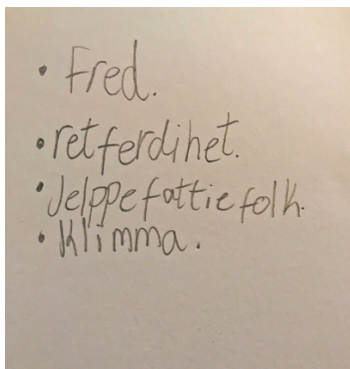 • Fred.
• retferdihet.
• Jelppe fattie folk.
• Klimma.